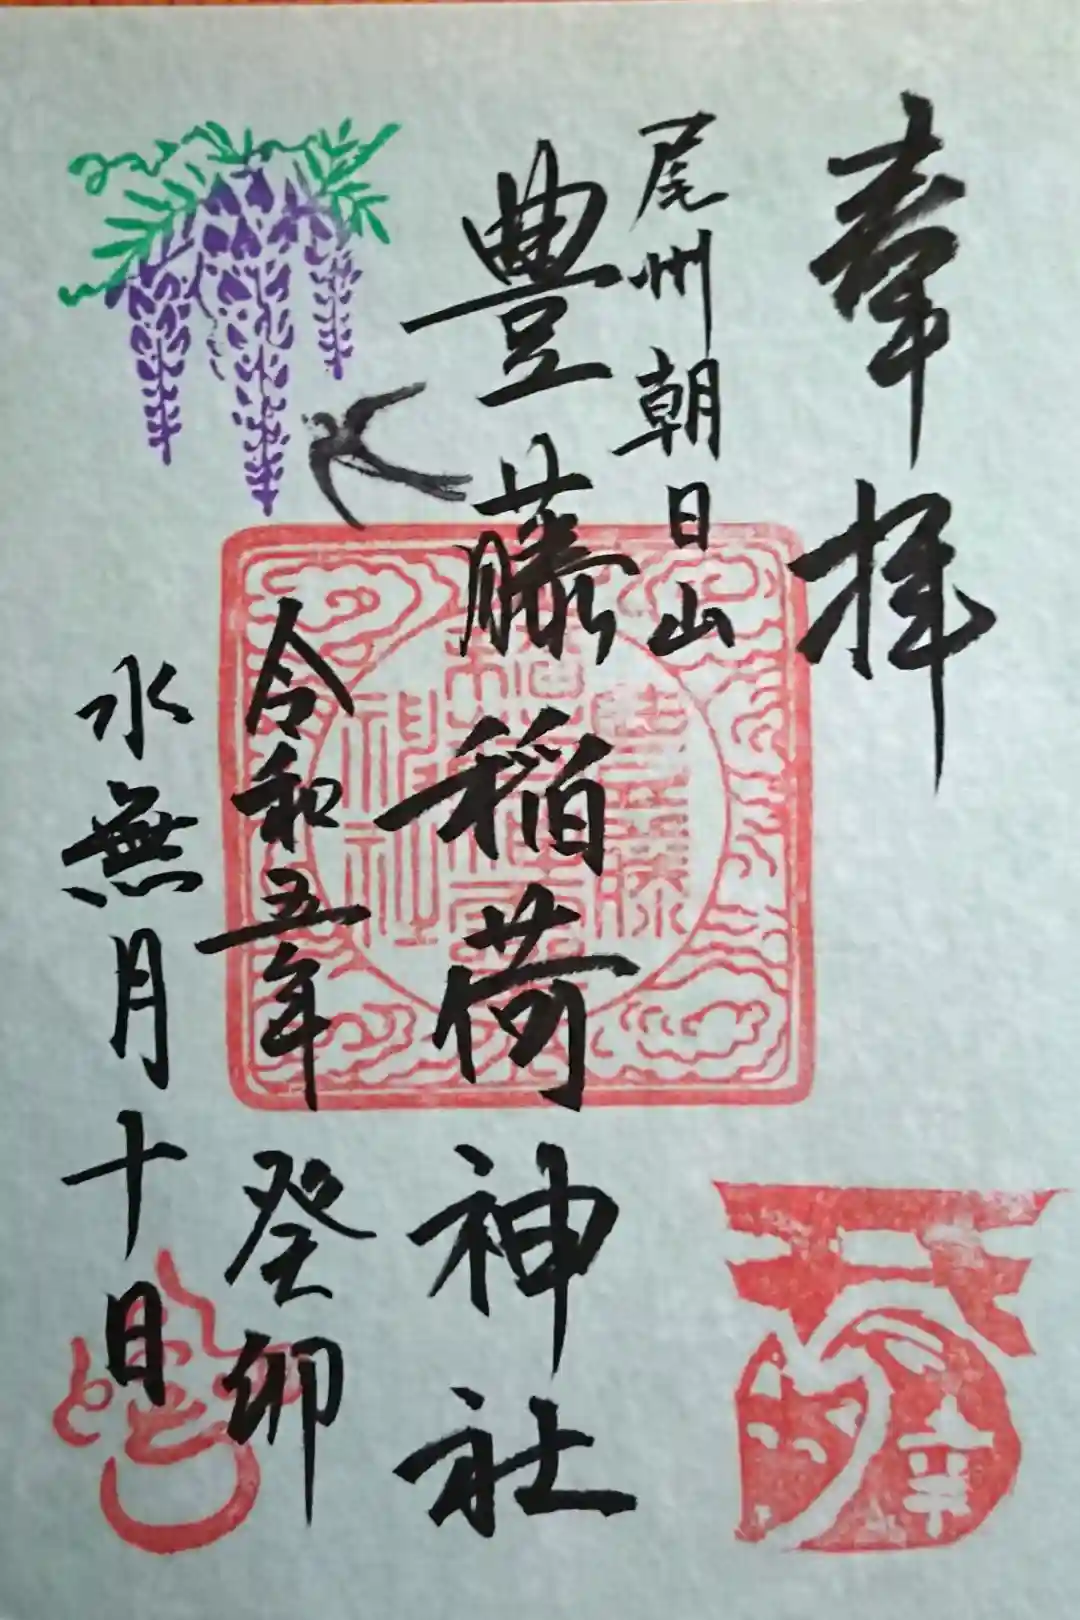 奉拝
尾州朝日山
豊藤稲荷神社
令和五年 癸卯
水無月十日
豊藤
稲荷
神社